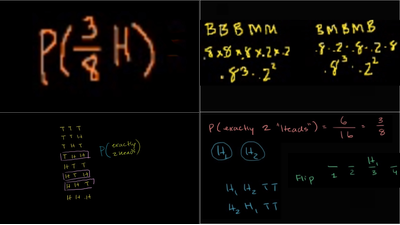 P(3/8 H)
B B B M M
.8 x .8 x .8 x .2 x .2
.8³ . .2²
B M B M B
.8 .2 .8 .2 .8
.8³ . .2²
T T T
T T H
T H T
T H H
H T T
H T H
H H T
H H H
P(exactly 2 heads)
P(exactly 2 "Heads") = 6/16 = 3/8
H₁ H₂
H₁
Flip 1 2 3 4
H₁ H₂ T T
H₂ H₁ T T